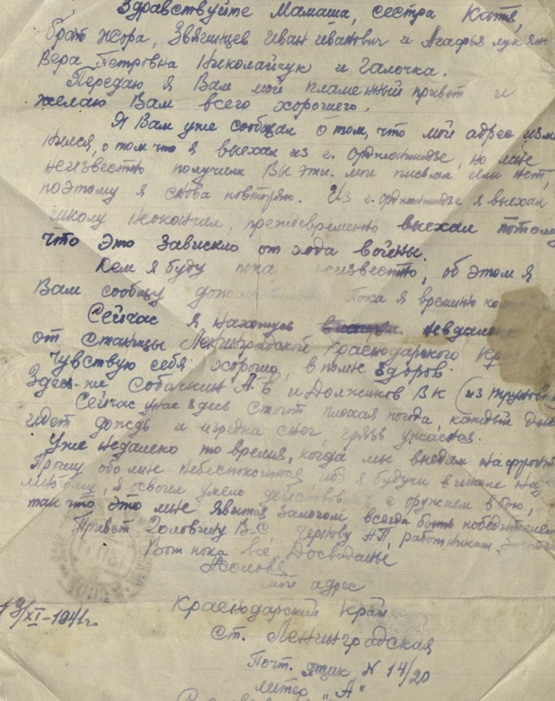 Здравствуйте Мамаша, сестра Катя,
брат Жора, Звягинцев Иван Иванович и Агафья
Вера Петровна Николайчук и Галочка.
Передаю я Вам мой пламенный привет и
желаю Вам всего хорошего.
Я Вам уже сообщал о том, что мой адрес изме
нился, о том что я выехал из г. Орджоникидзе, но мне
неизвестно получили Вы эти мои письма или нет,
поэтому я снова повторяю. Из г. Орджоникидзе я выехал
школу неокончил, преждевременно выехал потому
что это зависило от хода войны.
Кем я буду пока неизвестно, об этом я
Вам сообщу Пока я временно
Сейчас я нахожусь невдалеке
от станицы Ленинградской Краснодарского Кр
Чувствую себя хорошо, вполне здоров.
Здесь-же Собачкин А Б и Должиков В К (из
Сейчас уже здесь стоит плохая погода каждый день
идет дождь и изредка снег, грязь ужасная.
Уже недалеко то время, когда мы выедем на фронт.
Прошу обо мне небеспокоится, ибо я будучи в
умело оружием в бою,
так что это мне явится залогом всегда быть победителем
Привет Головчину В.С, Чернову Н П, работникам
Вот пока все Досвидание
мой адрес
Краснодарский Край
ст. Ленинградская
Почт. ящик N 14/20
литер "А"
/XI-1941г.